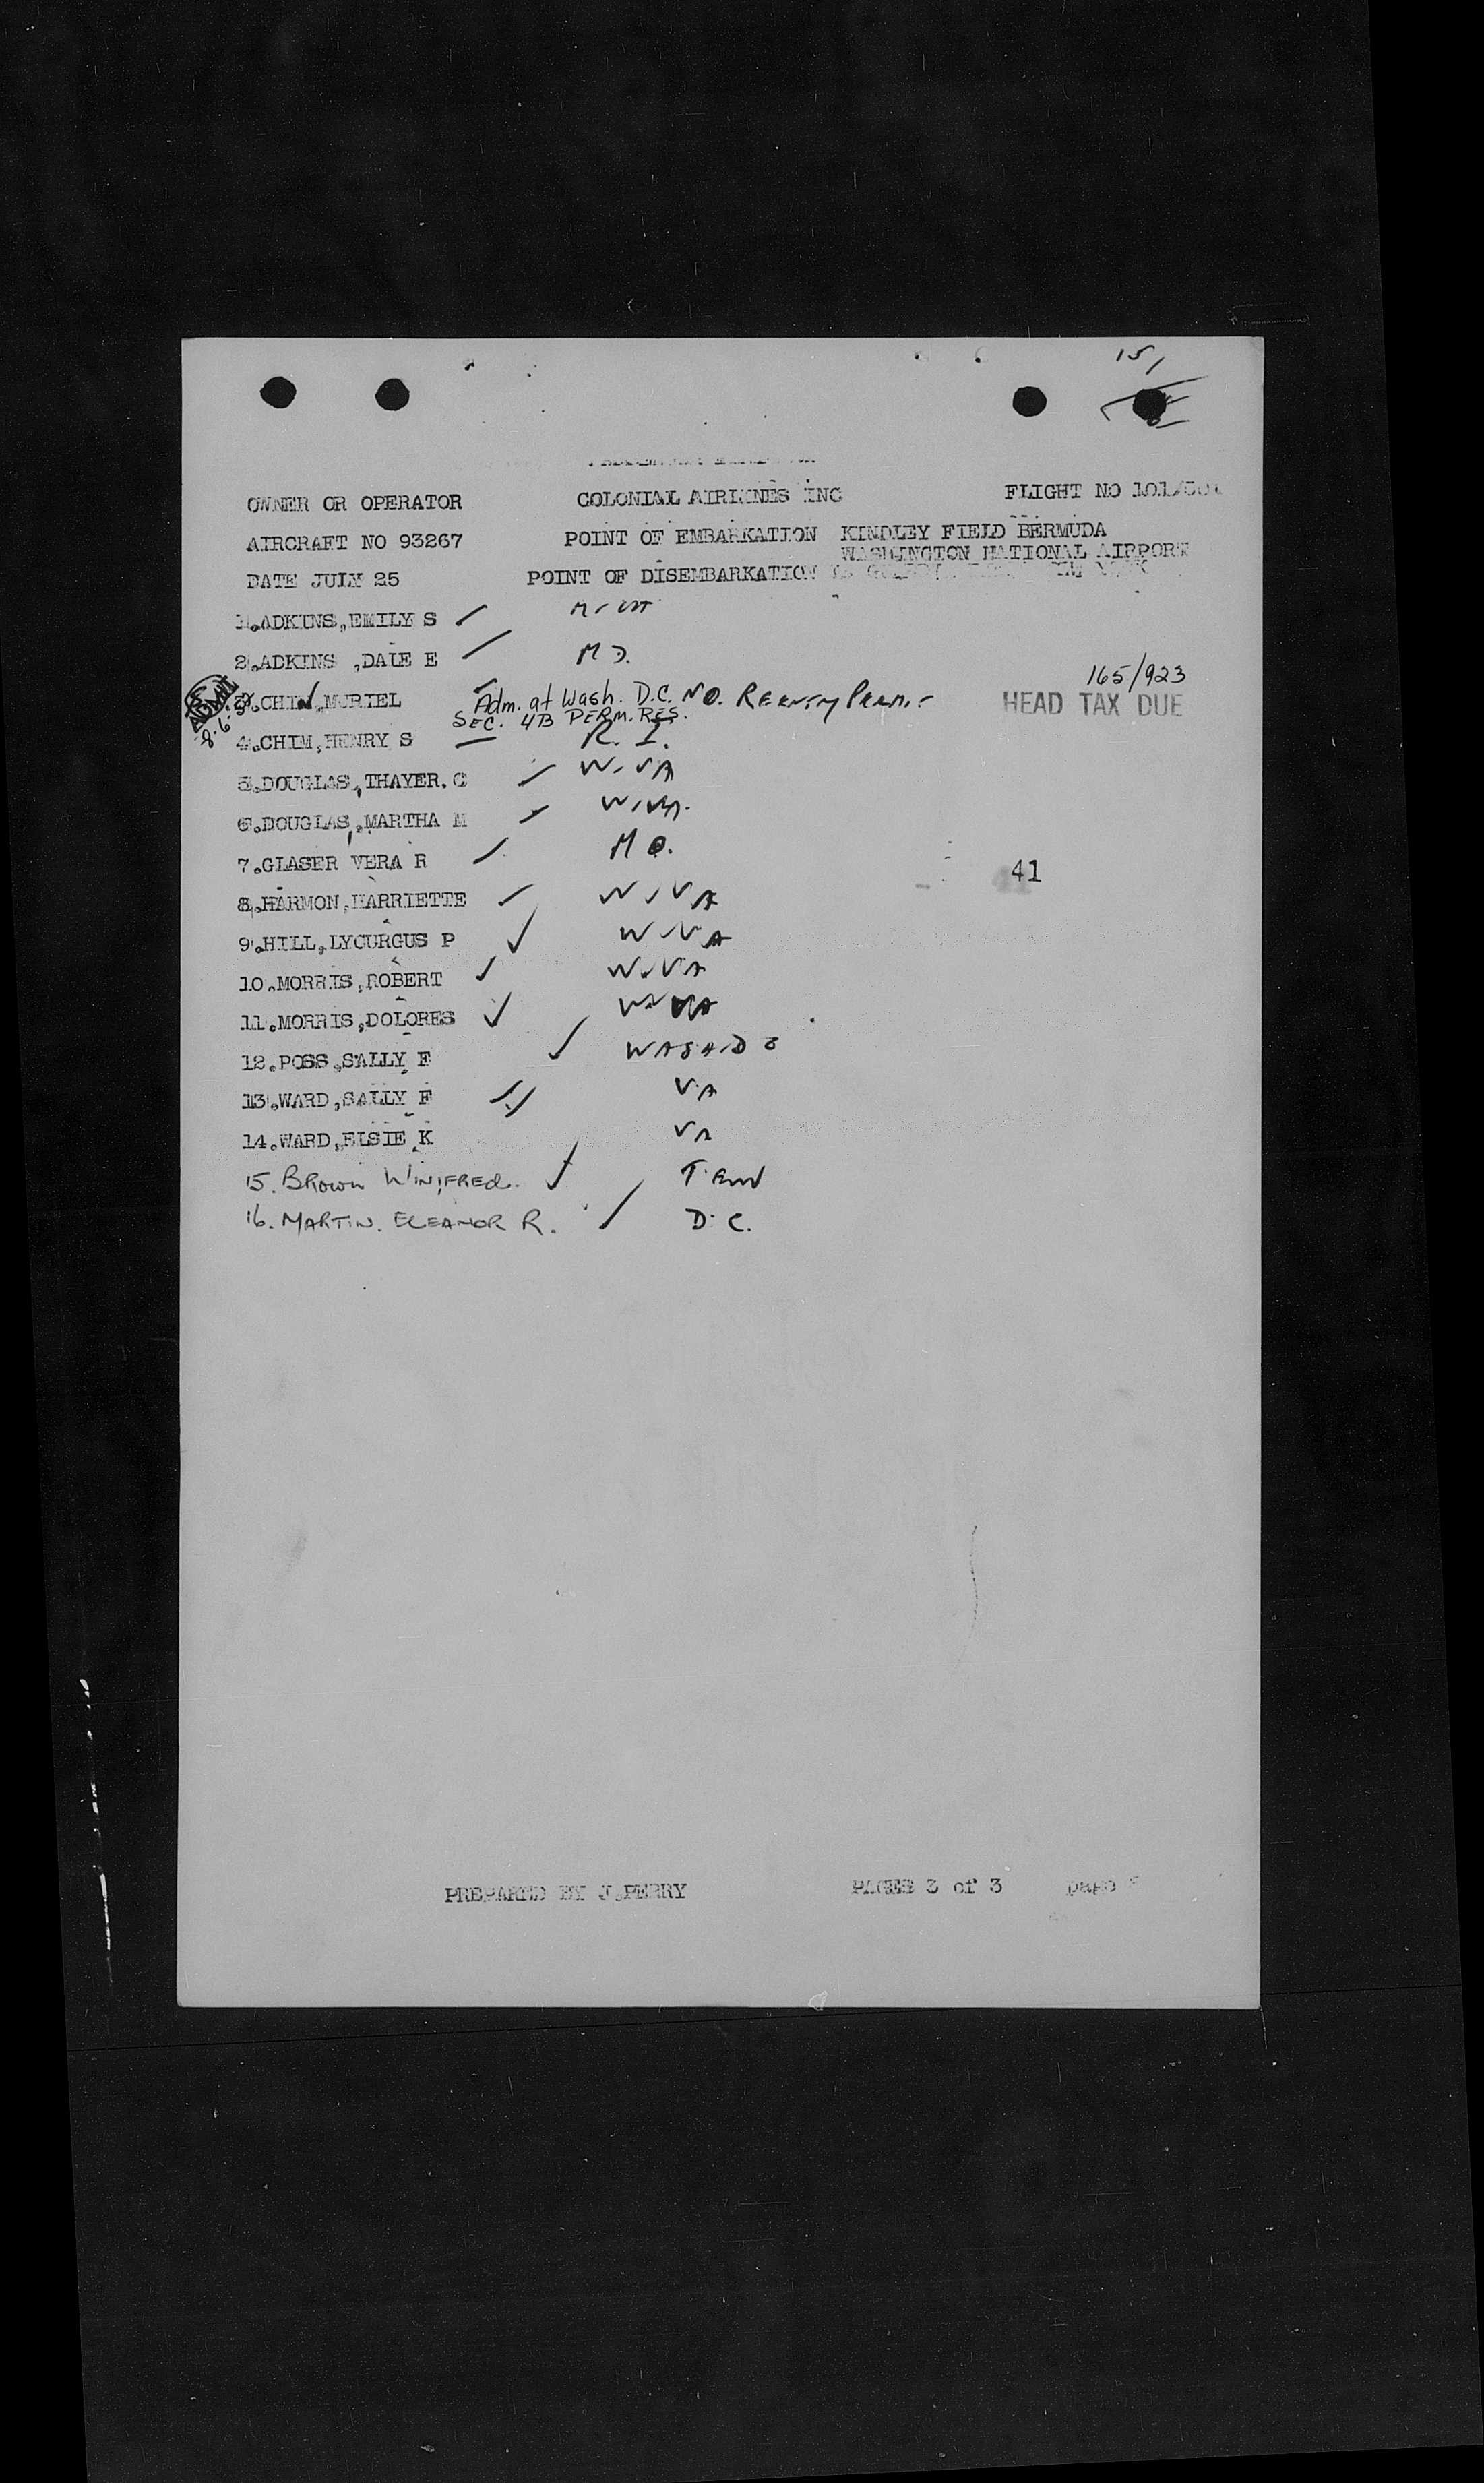 151
OWNER OR OPERATOR COLONIAL AIRLINES INC FLIGHT NO 101/301
AIRCRAFT NO 93267 POINT OF EMBARKATION KINDLEY FIELD BERMUDA
WASHINGTON NATIONAL AIRPORT
DATE JULY 25 POINT OF DISEMBARKATION
1.ADKINS,EMILY S
2.ADKINS ,DALE E MD.
165/923
3.CHIN,MURIEL Adm. at Wash. D.C. NO. REENTRY PERMIT HEAD TAX DUE
SEC. 4B PERM. RES.
8.6.52
4.CHIM,HENRY S R. I.
5.DOUGLAS,THAYER.C W.VA
6.DOUGLAS,MARTHA M W.VA.
7.GLASER VERA R MO.
41
8.HARMON,HARRIETTE W.VA
9.HILL,LYCURGUS P W.VA
10.MORRIS,ROBERT W.VA
11.MORRIS,DOLORES W.VA
12.POSS,SALLY F WASH.D C
13.WARD,SALLY F VA
14.WARD,ELSIE K VA
15. BROWN WINIFRED. TENN
16. MARTIN. ELEANOR R. D.C.
PREPARED BY J.PERRY PAGES 3 of 3 page